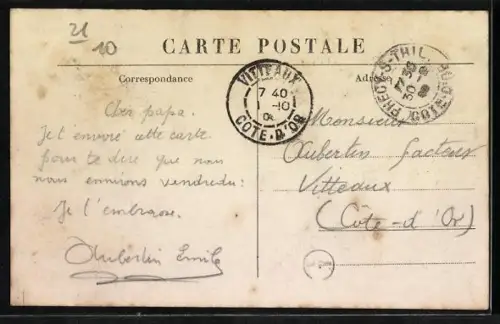 21
10
CARTE POSTALE
Correspondance
Cher papa.
Je t envoie cette carte
pour te dire que nous
nous environs vendredu:
Je t'embrasse.
Aubertin Emile
VITTEAUX
7 40
1 -10
CÔTE-D'OR
PRECY-S-THIL
30
CÔTE-D'OR
Monsieur
Aubertin facteur
Vitteaux
(Côte-d'Or)